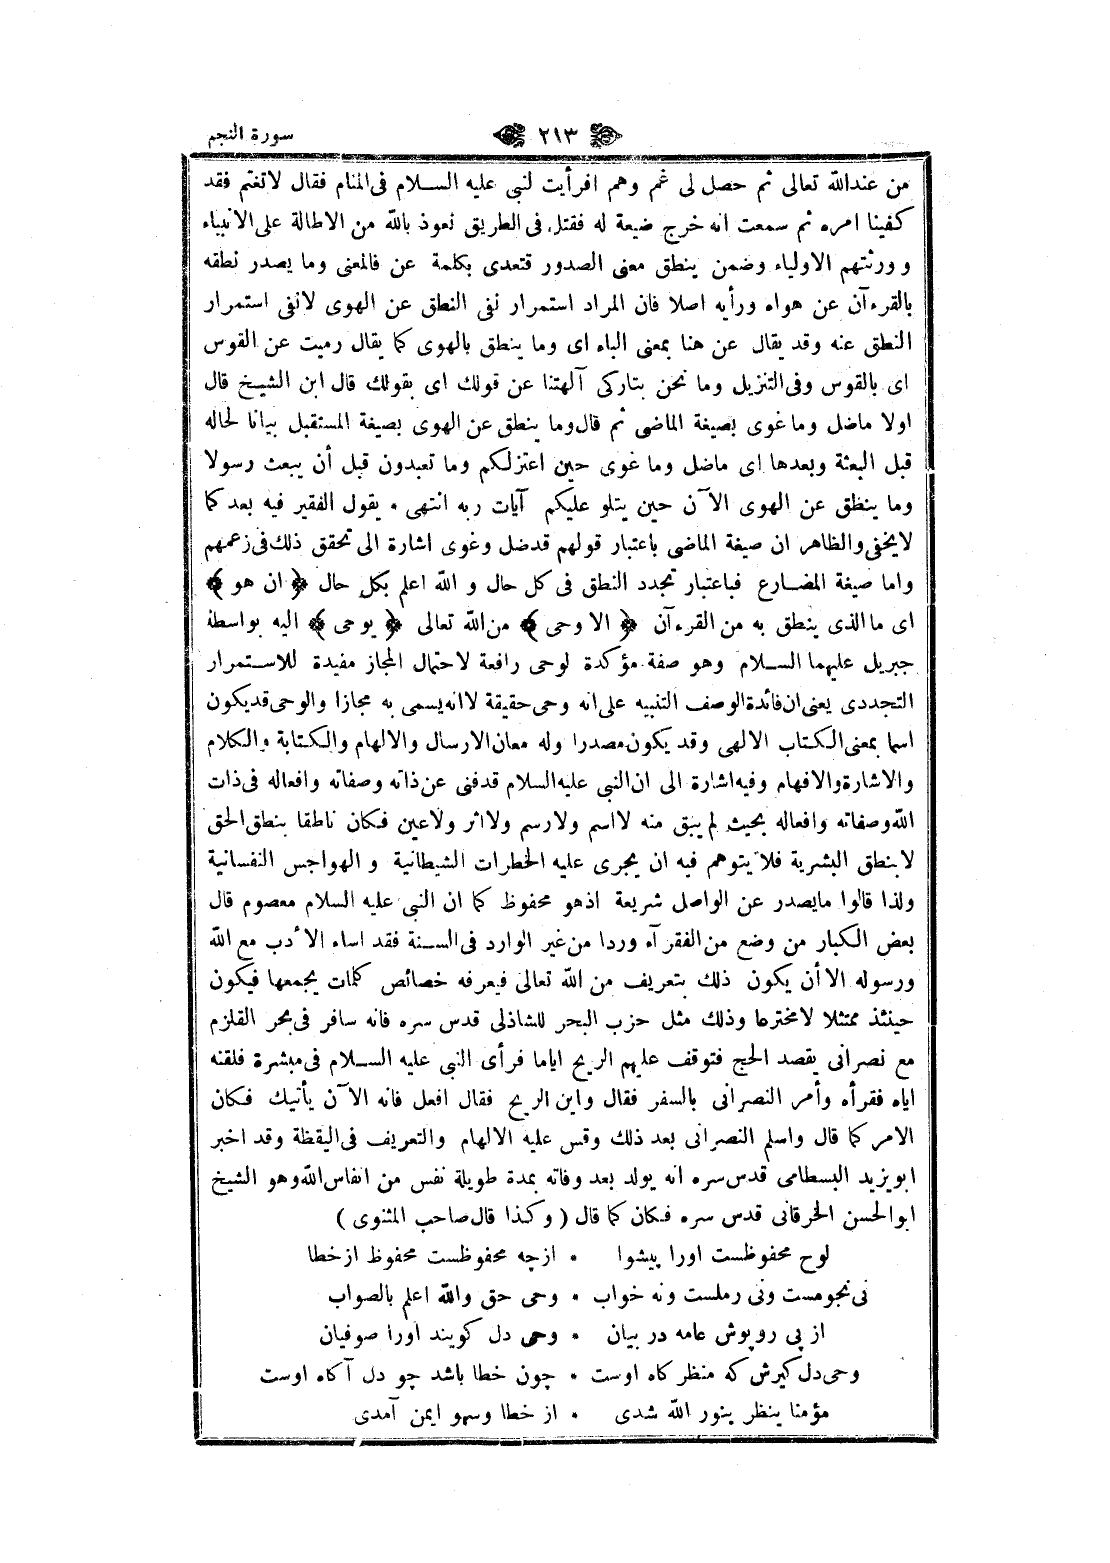 سورة النجم ٢١٣
من عندالله تعالى ثم حصل لى غم وهم افرأيت لنبى عليه السلام فى المنام فقال لاتغتم فقد
كفينا امره ثم سمعت انه خرج ضيعة له فقتل فى الطريق نعوذ بالله من الاطالة على الانبياء
وورثتهم الاولياء وضمن ينطق معنى الصدور فتعدى بكلمة عن فالمعنى وما يصدر نطقه
بالقرءآن عن هواه ورأيه اصلا فان المراد استمرار نفى النطق عن الهوى لانفى استمرار
النطق عنه وقد يقال عن هنا بمعنى الباء اى وما ينطق بالهوى كما يقال رميت عن القوس
اى بالقوس وفى التنزيل وما نحن بتاركى آلهتنا عن قولك اى بقولك قال ابن الشيخ قال
اولا ماضل وما غوى بصيغة الماضى ثم قال وما ينطق عن الهوى بصيغة المستقبل بيانا لحاله
قبل البعثة وبعدها اى ماضل وما غوى حين اعتزلكم وما تعبدون قبل أن يبعث رسولا
وما ينظق عن الهوى الآن حين يتلو عليكم آيات ربه انتهى • يقول الفقير فيه بعد كما
لايخفى والظاهر ان صيغة الماضى باعتبار قولهم قدضل وغوى اشارة الى تحقق ذلك فى زعمهم
واما صيغة المضارع فباعتبار تجدد النطق فى كل حال و الله اعلم بكل حال ﴿ ان هو ﴾
اى ما الذى ينطق به من القرءآن ﴿ الا وحى ﴾ من الله تعالى ﴿ يوحى ﴾ اليه بواسطة
جبريل عليهما السلام وهو صفة مؤكدة لوحى رافعة لاحتمال المجاز مفيدة للاستمرار
التجددى يعنى ان فائدة الوصف التنبيه على انه وحى حقيقة لا انه يسمى به مجازا والوحى قديكون
اسما بمعنى الكتاب الالهى وقد يكون مصدرا وله معان الارسال والالهام والكتابة والكلام
والاشارة والافهام وفيه اشارة الى ان النبى عليه السلام قدفنى عن ذاته وصفاته وافعاله فى ذات
الله وصفاته وافعاله بحيث لم يبق منه لا اسم ولا رسم ولا اثر ولا عين فكان ناطقا بنطق الحق
لابنطق البشرية فلا يتوهم فيه ان يجرى عليه الخطرات الشيطانية و الهواجس النفسانية
ولذا قالوا مايصدر عن الواصل شريعة اذهو محفوظ كما ان النبى عليه السلام معصوم قال
بعض الكبار من وضع من الفقرآء وردا من غير الوارد فى السنة فقد اساء الأدب مع الله
ورسوله الا أن يكون ذلك بتعريف من الله تعالى فيعرفه خصائص كلمات يجمعها فيكون
حينئذ ممتثلا لامخترعا وذلك مثل حزب البحر للشاذلى قدس سره فانه سافر فى بحر القلزم
مع نصرانى يقصد الحج فتوقف عليهم الريح اياما فرأى النبى عليه السلام فى مبشرة فلقنه
اياه فقرأه وأمر النصرانى بالسفر فقال واين الريح فقال افعل فانه الآن يأتيك فكان
الامر كما قال واسلم النصرانى بعد ذلك وقس عليه الالهام والتعريف فى اليقظة وقد اخبر
ابويزيد البسطامى قدس سره انه يولد بعد وفاته بمدة طويلة نفس من انفاس الله وهو الشيخ
ابوالحسن الخرقانى قدس سره فكان كما قال ( وكذا قال صاحب المثنوى )
لوح محفوظست اورا پيشوا • ازچه محفوظست محفوظ ازخطا
نى نجومست ونى رملست ونه خواب • وحى حق والله اعلم بالصواب
از پى روپوش عامه در بيان • وحى دل كويند اورا صوفيان
وحى دل كيرش كه منظر كاه اوست • چون خطا باشد چو دل آكاه اوست
مؤمنا ينظر بنور الله شدى • از خطا وسهو ايمن آمدى